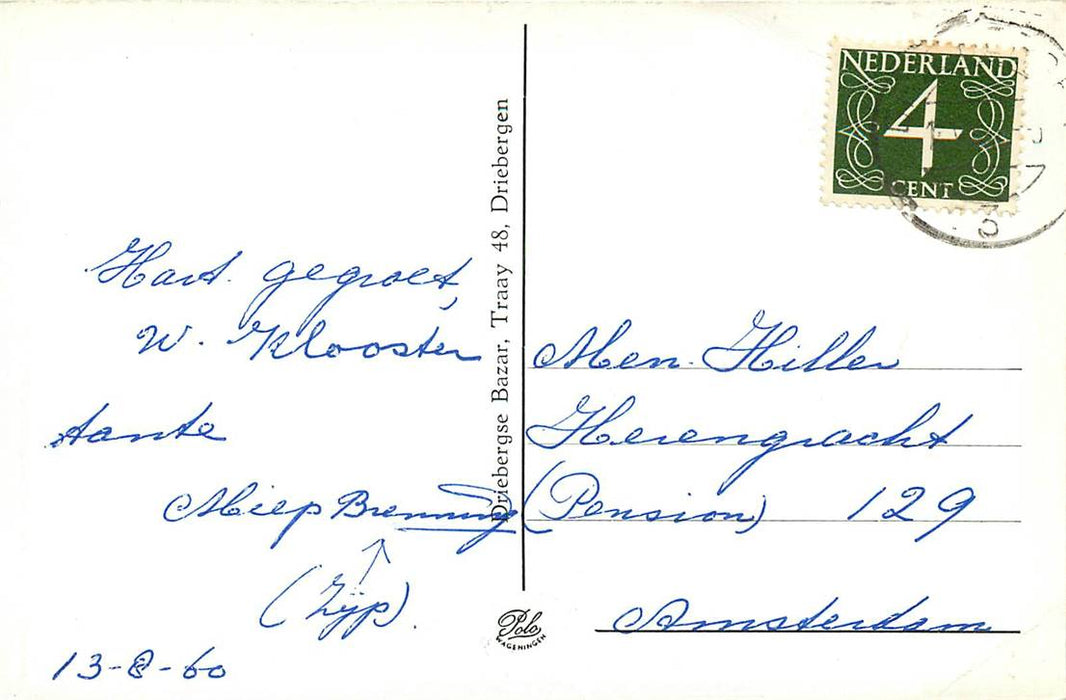 Hart. gegroet,
W. Klooster
tante
Miep Brenning
(Zijp).
13-8-60
Driebergse Bazar, Traay 48, Driebergen
Polo
WAGENINGEN
NEDERLAND
4
CENT
Men. Hiller
Herengracht
(Pension) 129
Amsterdam